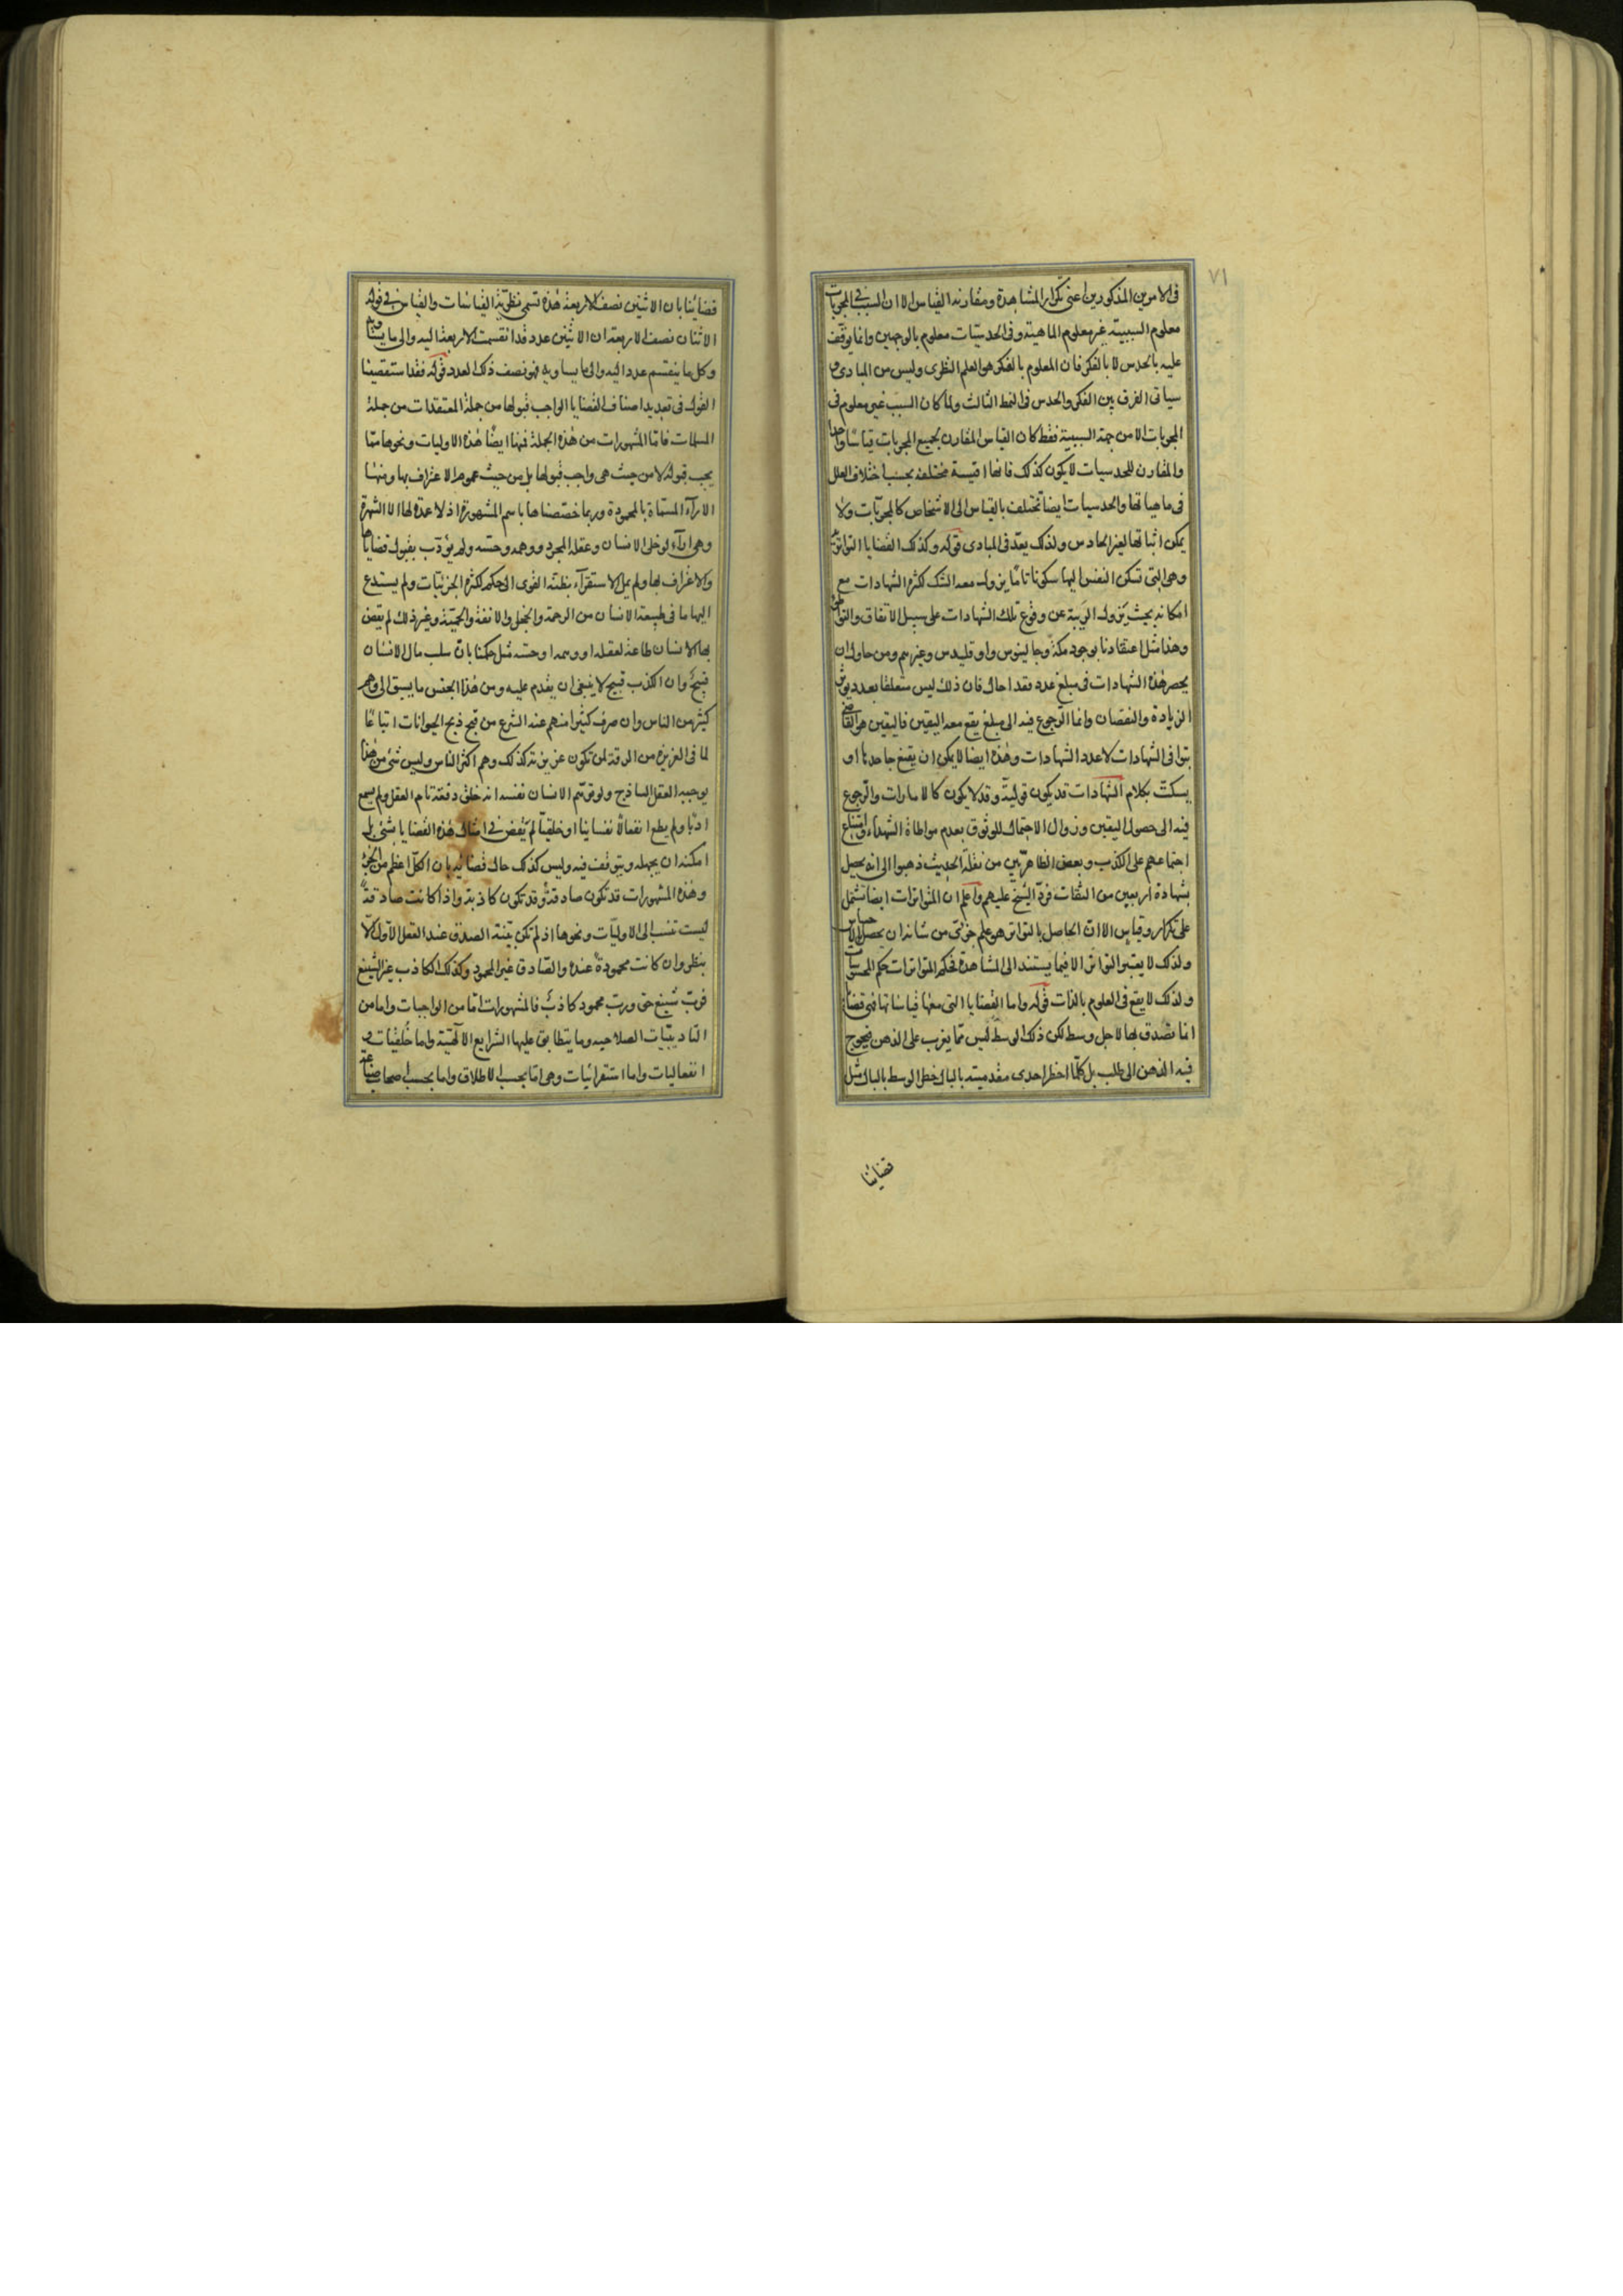 ٧١
فى الامرين المذكورين اعنى تكرار المشاهدة ومقارنه القياس الا ان السبب فى المجربات
معلوم السببية غير معلوم الماهية وفى الحدسيّات معلوم بالوجهين وانما يوقف
عليه بالحدس لا بالفكر فان المعلوم بالفكر هو العلم النظرى وليس من المبادى و
سياتى الفرق بين الفكر والحدس فى النمط الثالث ولما كان السبب غير معلوم فى
المجربات الا من جهة السببية فقط كان القياس المقارن لجميع المجربات قياسا واحدا
والمقارن للحدسيات لا يكون كذلك فانها اقيسة مختلفة بحسب اختلاف العلل
فى ماهياتها والحدسيات ايضا تختلف بالقياس الى الاشخاص كالمجربات ولا
يمكن اثباتها لغير الحادس ولذلك يعد فى المبادى قوله وكذلك القضايا التواترية
وهى التى تسكن النفس اليها سكونا تامّا يزول معه الشك لكثرة الشهادات مع
امكانه بحيث يزول الريبة عن وقوع تلك الشهادات على سبيل الاتفاق والتواطى
وهذا مثل اعتقادنا بوجود مكة وجالينوس واوقليدس وغيرهم ومن حاول ان
يحصر هذه الشهادات فى مبلغ عدد فقد احال فان ذلك ليس متعلقا بعدد يوثر
الزيادة والنقصان وانما الرجوع فيه الى مبلغ يقع معه اليقين فاليقين هو القاضى
بتوافى الشهادات لا عدد الشهادات وهذه ايضا لا يمكن ان يقنع جاحدها او
يسكت بكلام الشهادات قد يكون قولية وقد لا يكون كالامارات والرجوع
فيه الى حصول اليقين وزوال الاحتمال للوثوق بعدم مواطاة الشهداء وامتناع
اجتماعهم على الكذب وبعض الظاهريّين من نقلة الحديث ذهبوا الى انه يحصل
بشهادة اربعين من الثقات فردّ الشيخ عليهم واعلم ان المتواترات ايضا تشتمل
على تكرار وقياس الا انّ الحاصل بالتواتر هو علم جزئى من شانه ان يحصل بالاحساس
ولذلك لا يعتبر التواتر الا فيما يستند الى المشاهدة فحكم المتواترات حكم المحسوسات
ولذلك لا يقع فى العلوم بالذات قوله واما القضايا التى معها قياساتها فهى قضايا
انما تصدق بها لاجل وسط لكن ذلك الوسط ليس ممّا يعزب على الذهن فيحوج
فيه الذهن الى طلب بل كلّما اخطر احدى مقدميته بالبال خطر الوسط بالبال مثل
قضايانا
قضايانا بان الاثنين نصف الاربعة هذه تسمى نظرية القياسات والقياس فى قوله
الاثنان نصف الاربعة ان الاثنين عدد قد انقسمت الاربعة اليه والى ما يساويه
وكل ما ينقسم عدد اليه والى ما يساويه فهو نصف ذلك العدد قوله فقد استقصينا
القول فى تعديد اصناف القضايا الواجب قبولها من جملة المعتقدات من جملة
المسلمات فامّا المشهورات من هذه الجملة فمنها ايضا هذه الاوليات ونحوها ممّا
يجب قبوله لا من حيث هى واجب قبولها بل من حيث عموم الاعتراف بها ومنها
الآراء المسمّاة بالمحمودة وربما خصّصناها باسم المشهورة اذ لا عدة لها الا الشهرة
وهى آراء لو خلى الانسان وعقله المجرد ووهمه وحسّه ولم يؤدّب بقبول قضاياها
والاعتراف بها ولم يمل الاستقرآء بظنّه القوى الى حكم لكثرة الجزئيّات ولم يستدع
اليها ما فى طبيعة الانسان من الرحمة والخجل والانفة والحميّة وغير ذلك لم يقض
بها الانسان طاعة لعقله او وهمه او حسّه مثل حكمنا بانّ سلب مال الانسان
قبيح وان الكذب قبيح لا ينبغى ان يقدم عليه ومن هذا الجنس ما يسبق الى وهم
كثير من الناس وان صرف كثيرا منهم عنه الشرع من قبح ذبح الحيوانات اتباعا
لما فى الغريزة من الرقة لمن تكون غريزته كذلك وهم اكثر الناس وليس شئ من هذا
يوجبه العقل الساذج ولو توهّم الانسان نفسه انه خلق دفعة تام العقل ولم يسمع
ادبا ولم يطع انفعالا نفسانيا او خلقيّا لم يقض فى امثال هذه القضايا بشئ بل
امكنه ان يجهله ويتوقف فيه وليس كذلك حال قضائه بان الكلّ اعظم من الجزء
وهذه المشهورات قد تكون صادقة وقد تكون كاذبة واذا كانت صادقة
ليست تنسب الى الاوليّات ونحوها اذ لم تكن بيّنة الصدق عند العقل الاول الّا
بنظر وان كانت محمودة عنده والصادق غير المحمود وكذلك الكاذب غير الشنيع
فربّ شنيع حق وربّ محمود كاذب فالمشهورات امّا من الواجبات واما من
التاديبيّات الصلاحيه وما يتطابق عليها الشرايع الالهيّة واما خُلقيّات و
انفعاليات واما استقرائيات وهى امّا بحسب الاطلاق واما بحسب اصحاب صناعة